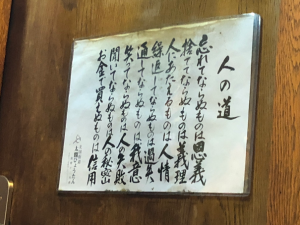 人の道
忘れてならぬものは恩義
捨ててならぬものは義理
人にあたえるものは人情
繰返してならぬものは過失
通してならぬものは我意
笑ってならぬものは人の失敗
聞いてならぬものは人の秘密
お金で買えぬものは信用